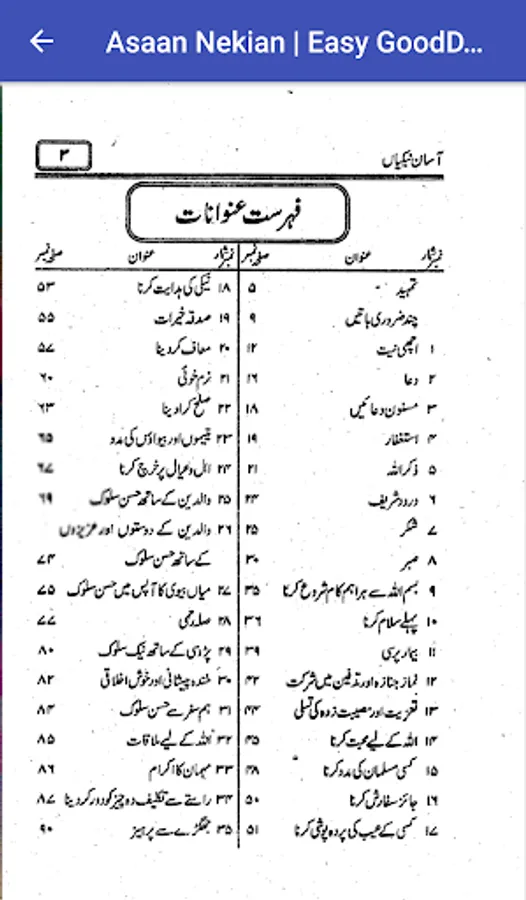 Asaan Nekian | Easy GoodD...
آسان نیکیاں
۳
فہرست عنوانات
نمبر شمار عنوان صفحہ نمبر
تمہید ۵
چند ضروری باتیں ۹
۱ اچھی نیت ۱۲
۲ دعا ۱۶
۳ مسنون دعائیں ۱۸
۴ استغفار ۱۹
۵ ذکر اللہ ۲۱
۶ درود شریف ۲۳
۷ شکر ۲۵
۸ صبر ۳۰
۹ بسم اللہ سے ہر اہم کام شروع کرنا ۳۵
۱۰ پہلے سلام کرنا ۳۶
۱۱ بیمار پرسی ۳۹
۱۲ نماز جنازہ اور تدفین میں شرکت ۴۲
۱۳ تعزیت اور مصیبت زدہ کی تسلی ۴۴
۱۴ اللہ کے لیے محبت کرنا ۴۵
۱۵ کسی مسلمان کی مدد کرنا ۴۸
۱۶ جائز سفارش کرنا ۵۰
۱۷ کسی کے عیب کی پردہ پوشی کرنا ۵۱
نمبر شمار عنوان صفحہ نمبر
۱۸ نیکی کی ہدایت کرنا ۵۳
۱۹ صدقہ خیرات ۵۵
۲۰ معاف کر دینا ۵۷
۲۱ نرم خوئی ۶۰
۲۲ صلح کرا دینا ۶۳
۲۳ یتیموں اور بیواؤں کی مدد ۶۵
۲۴ اہل و عیال پر خرچ کرنا ۶۷
۲۵ والدین کے ساتھ حسن سلوک ۶۹
۲۶ والدین کے دوستوں اور عزیزوں
کے ساتھ حسن سلوک ۷۴
۲۷ میاں بیوی کا آپس میں حسن سلوک ۷۵
۲۸ صلہ رحمی ۷۷
۲۹ پڑوسی کے ساتھ نیک سلوک ۸۰
۳۰ خندہ پیشانی اور خوش اخلاقی ۸۲
۳۱ ہم سفر سے حسن سلوک ۸۴
۳۲ اللہ کے لیے ملاقات ۸۵
۳۳ مہمان کا اکرام ۸۶
۳۴ راستے سے تکلیف دہ چیز کو دور کر دینا ۸۷
۳۵ جھگڑے سے پرہیز ۹۰